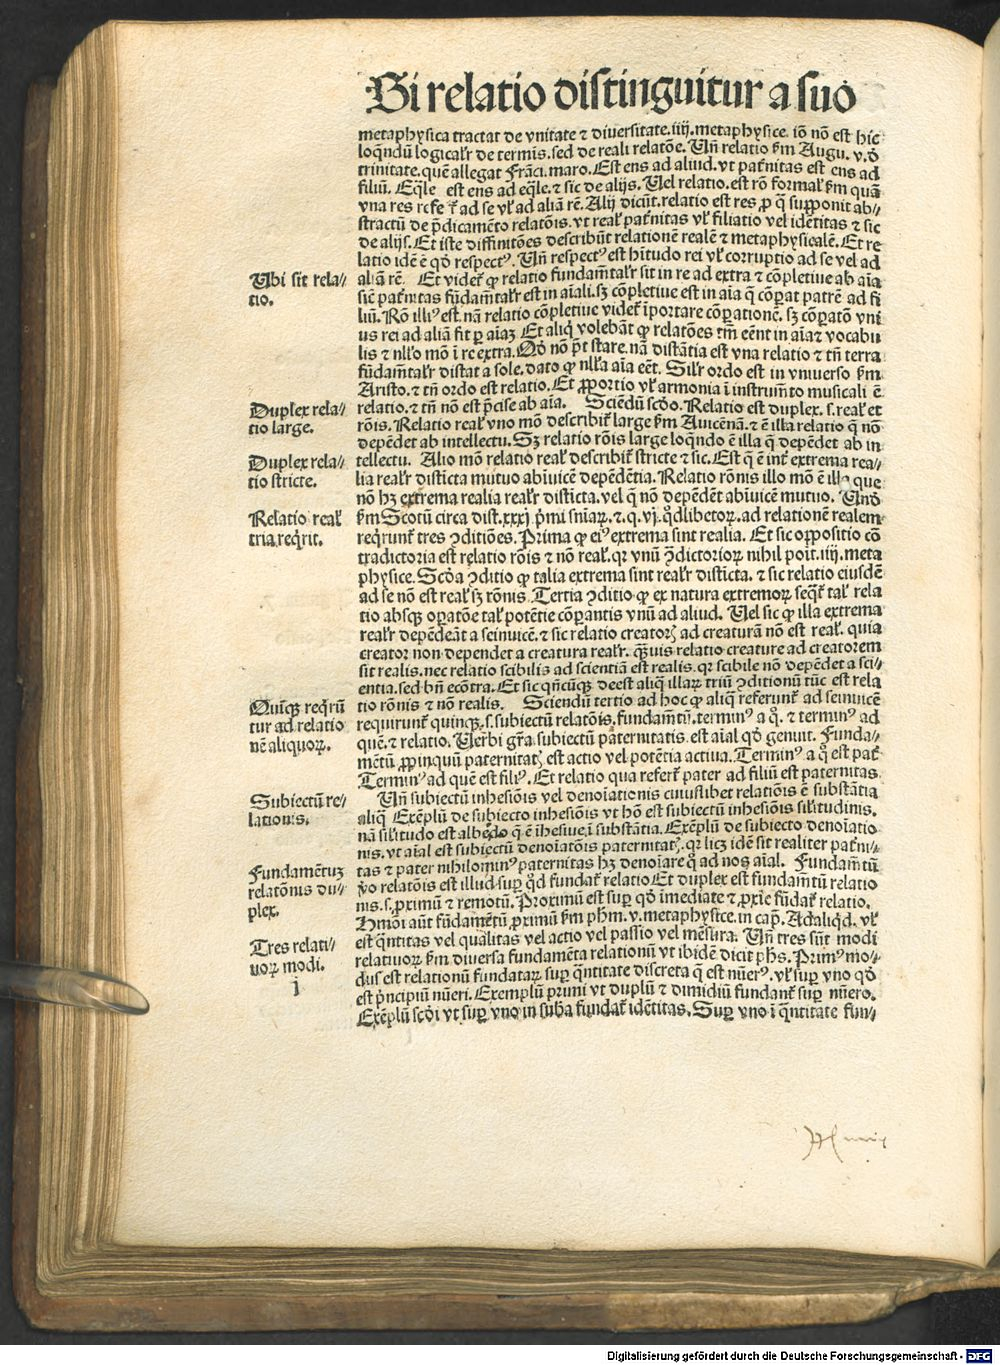 Si relatio distinguitur a suo
metaphysica tractat de vnitate ⁊ diuersitate.iiij.metaphysice. iõ nõ est hic
loqñdũ logicaƚr de termĩs.sed de reali relatõe. Vñ relatio ẜm Augu. v.ð
trinitate.quẽ allegat Frãci. maro. Est ens ad aliud.vt pat̃nitas est ens ad
filiũ. Eq̃le est ens ad eq̃le.⁊ sic de alijs. Uel relatio.est rõ formaƚ ẜm quã
vna res refert̃ ad se vƚ ad aliã rẽ. Alij dicũt.relatio est res ꝓ q̃ supponit ab⸗
stractũ de p̃dicamẽto relatõis.vt reaƚ pat̃nitas vƚ filiatio vel idẽtitas ⁊ sic
de alijs. Et iste diffinitões describũt relationẽ realẽ ⁊ metaphysicalẽ. Et re
latio idẽ ẽ qð respectꝰ. Vñ respectꝰ est hĩtudo rei vƚ corruptio ad se vel ad
aliã rẽ. Et videt̃ ꝙ relatio fundam̃taƚr sit in re ad extra ⁊ cõpletiue ab aĩa
sicñ pat̃nitas fũdam̃taƚr est in aĩali.sꝫ cõpletiue est in aĩa q̃ cõparat patrẽ ad fi
liũ. Rõ illiꝰ est. nã relatio cõpletiue videt̃ ĩportare cõparationẽ. sꝫ cõparatõ vni
us rei ad aliã fit ꝑ aĩaꝫ Et aliq̃ volebãt ꝙ relatões tm̃ eẽnt in aĩa ⁊ vocabu
lis ⁊ nƚƚo mõ ĩ re extra. Qð nõ põt stare. nã distãtia est vna relatio ⁊ tñ terra
fũdam̃taƚr distat a sole.dato ꝙ nƚƚa aĩa eẽt. Siƚr ordo est in vniuerso ẜm
Aristo.⁊ tñ ordo est relatio. Et ꝓportio vƚ armonia ĩ instrum̃to musicali ẽ
relatio.⁊ tñ nõ est p̃cise ab aĩa. Sciẽdũ scðo. Relatio est duplex. s.reaƚ et
rõis. Relatio reaƚ vno mõ describit̃ large ẜm Auicẽnã.⁊ ẽ illa relatio q̃ nõ
depẽdet ab intellectu. Sꝫ relatio rõis large loqñdo ẽ illa q̃ depẽdet ab in
tellectu. Alio mõ relatio reaƚ describit̃ stricte ⁊ sic. Est q̃ ẽ int̃ extrema rea⸗
lia reaƚr disticta mutuo abiuicẽ depẽdẽtia. Relatio rõnis illo mõ ẽ illa que
nõ hꝫ extrema realia reaƚr disticta. vel q̃ nõ depẽdẽt abiuicẽ mutuo. Vñð
ẜm Scotũ circa dist.xxxj p̃mi snĩaꝝ.⁊.q.vj.qðlibetoꝝ.ad relationẽ realem
reqrũnt̃ tres ꝯditiões. Prima ꝙ eiꝰ extrema sint realia. Et sic oppositio cõ
tradictoria est relatio rõis ⁊ nõ reaƚ. qr vnũ ꝯdictorioꝝ nihil poĩt.iiij.meta
physice. Scða ꝯditio ꝙ talia extrema sint reaƚr disticta.⁊ sic relatio eiusdẽ
ad se nõ est reaƚ sꝫ rõnis. Tertia ꝯditio ꝙ ex natura extremoꝝ seqt̃ taƚ rela
tio absqꝫ oꝑatõe taƚ potẽtie cõparantis vnũ ad aliud. Uel sic ꝙ illa extrema
reaƚr depẽdeãt a seinuicẽ.⁊ sic relatio creatoꝝ ad creaturã nõ est reaƚ. quia
creator non dependet a creatura reaƚr. q̃uis relatio creature ad creatorem
sit realis.nec relatio scibilis ad scientiã est realis. qr scibile nõ depẽdet a sci⸗
entia.sed bñ ecõtra. Et sic qñcũqꝫ deest aliq̃ illaꝝ triũ ꝯditionũ tũc est rela
tio rõnis ⁊ nõ realis. Sciendũ tertio ad hoc ꝙ aliq̃ referunt̃ ad seinuicẽ
requirunt̃ quinqꝫ.s.subiectũ relatõis.fundam̃tũ.terminꝰ a q̊.⁊ terminꝰ ad
quẽ.⁊ relatio. Uerbi gr̃a subiectũ paternitatis.est aĩal qð genuit. Funda⸗
mẽtũ ꝓpinquũ paternitatꝭ est actio vel potẽtia actiua. Terminꝰ a q̊ est pat̃
Terminꝰ ad quẽ est filiꝰ. Et relatio qua refert̃ pater ad filiũ est paternitas.
Vñ subiectũ inhesiõis vel denoĩationis cuiuslibet relatiõis ẽ substãtia
aliq̃ Exẽplũ de subiecto inhesiõis vt hõ est subiectũ inhesiõis siƚitudinis.
nã siƚitudo est albedo q̃ ẽ ĩhesiue ĩ substãtia. Exẽplũ de subiecto denoĩatio
nis.vt aĩal est subiectũ denoĩatõis paternitatꝭ. qr licꝫ idẽ sit realiter pat̃ni⸗
tas ⁊ pater nihilominꝰ paternitas hꝫ denoĩare q̃ ad nos aĩal. Fundam̃tũ
ṽo relatõis est illud sup qð fundat̃ relatio Et duplex est fundam̃tũ relatio
nis.s.ꝓximũ ⁊ remotũ. Proximũ est sup qð ĩmediate ⁊ ꝓxĩe fũdat̃ relatio.
Hmõi aũt fũdamẽtũ ꝓximũ ẜm phm̃. v.metaphysice.in cap. Adaliqd. vƚ
est q̃ntitas vel qualitas vel actio vel passio vel mẽsura. Vñ tres sũt modi
relatiuoꝝ ẜm diuersa fundamẽta relationũ vt ibidẽ dicit phs. Primꝰ mo⸗
dus est relationũ fundataꝝ sup q̃ntitate discreta q̃ est nũerꝰ. vƚ sup vno qð
est p̃ncipiũ nũeri. Exemplũ primi vt duplũ ⁊ dimidiũ fundant̃ sup nũero.
Exẽplũ scði vt sup vno in suba fundat̃ idẽtitas. Sup vno ĩ q̃ntitate fun⸗
Ubi sit rela⸗
tio.
Dupƚex rela⸗
tio large.
Duplex rela⸗
tio stricte.
Relatio reaƚ
tria reqrit.
Quĩqꝫ reqrũ
tur ad relatio
nẽ aliquoꝝ.
Subiectũ re⸗
lationis.
Fundamẽtuꝫ
relatõnis du⸗
plex.
Tres relati⸗
uoꝝ modi.
i
Digitalisierung gefördert durch die Deutsche Forschungsgemeinschaft - DFG